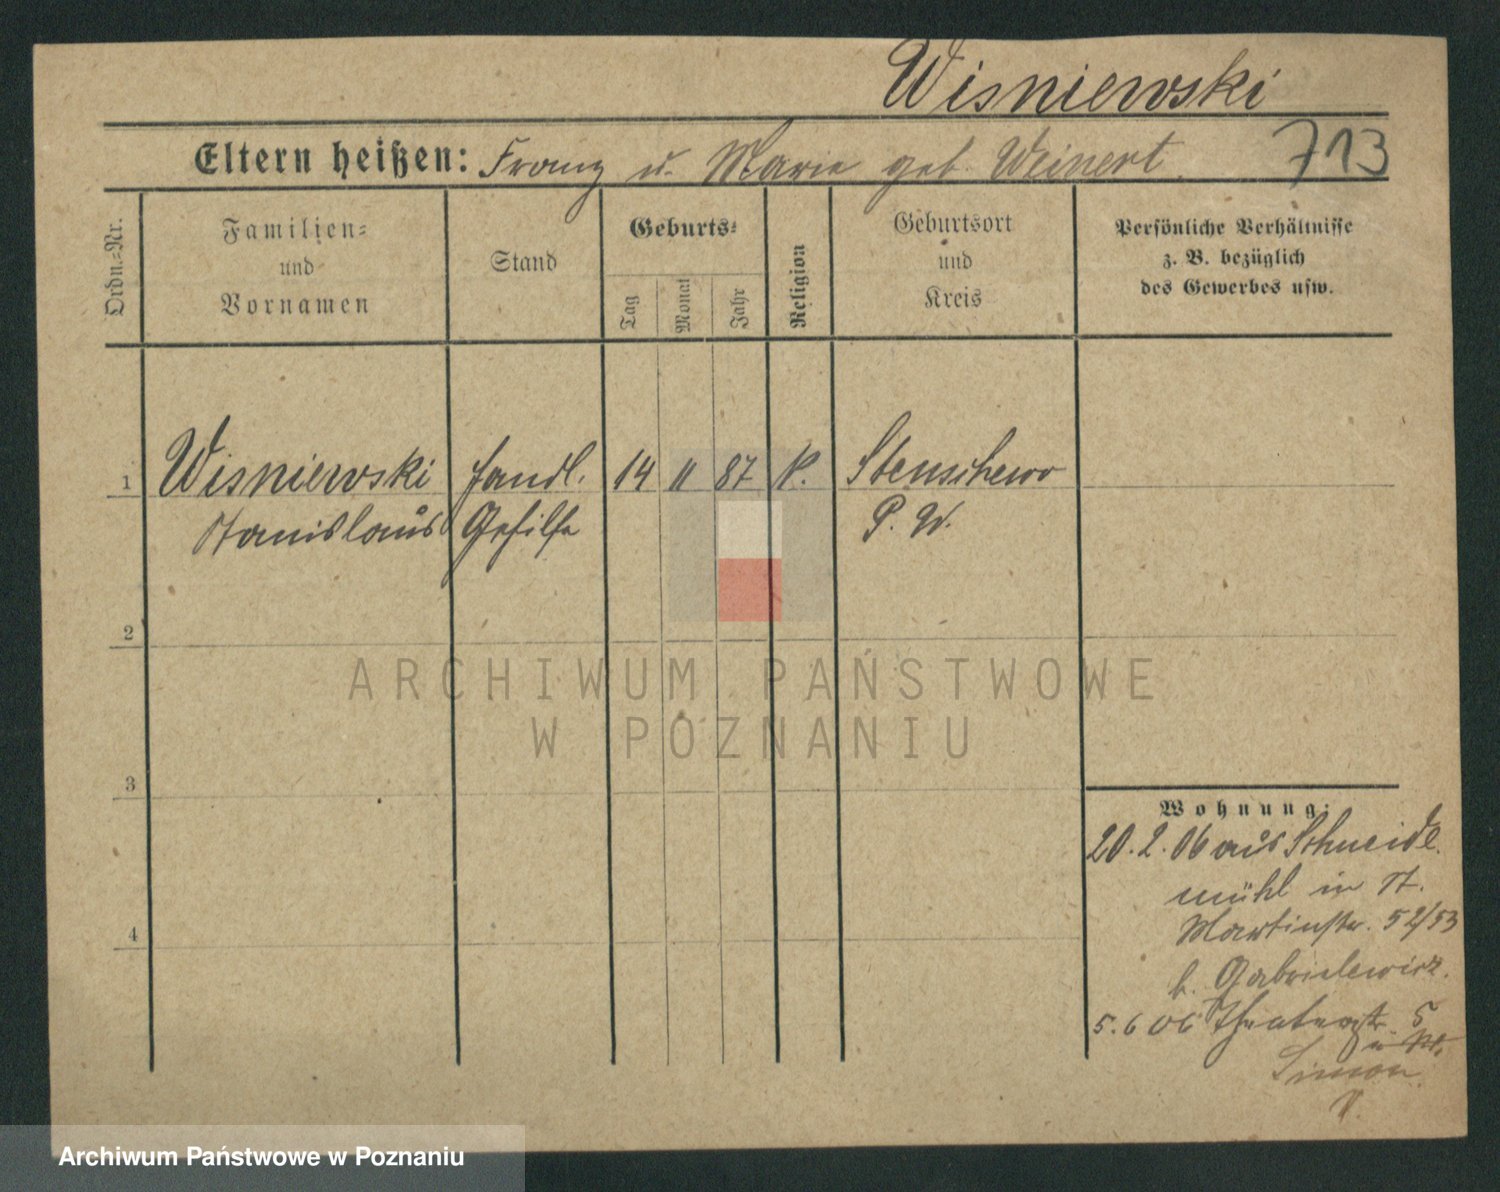 Wisniewski
Eltern heißen: Franz u. Marie geb. Weinert. 713
Ordn.-Nr.
Familien-
und
Vornamen
Stand
Geburts-
Tag
Monat
Jahr
Religion
Geburtsort
und
Kreis
Persönliche Verhältnisse
z. B. bezüglich
des Gewerbes usw.
1 Wisniewski Handl. 14 11 87 K. Stenschewo
Stanislaus Gehilfe P. W.
2
ARCHIWUM PAŃSTWOWE
W POZNANIU
3
Wohnung:
20. 2. 06 aus Schneide
mühl in St.
4
Martinstr. 52/53
b. Gabrielewicz.
5. 6 06 Theaterstr. 5
Simon
Archiwum Państwowe w Poznaniu